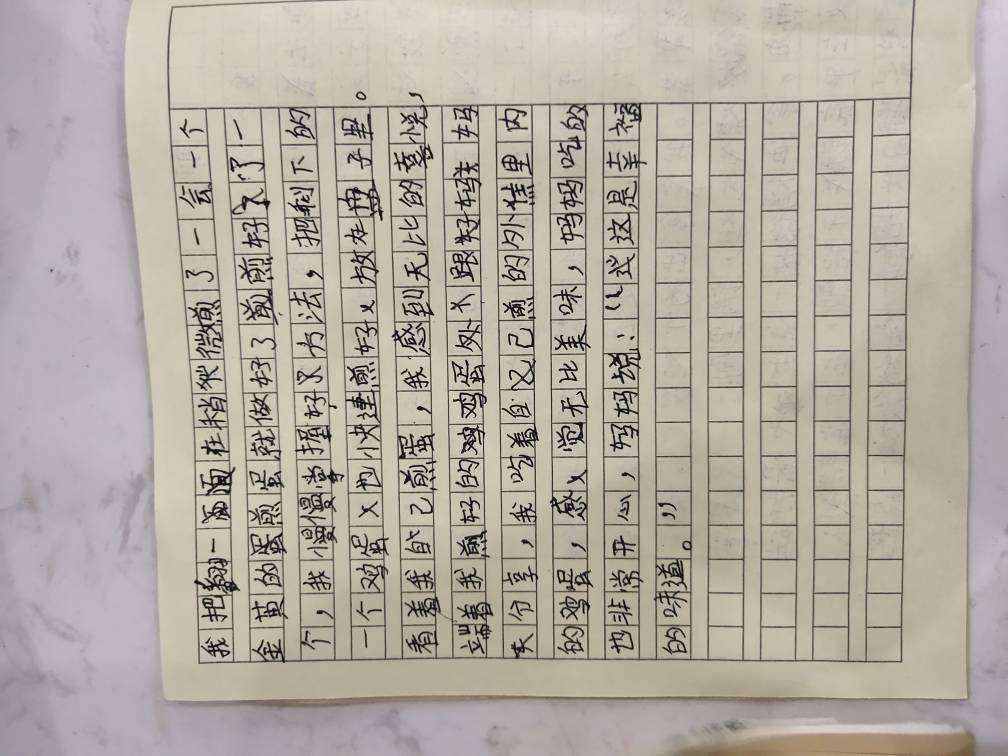 我把翻一面在稍稍微煎了一会一个
金黄的蛋煎蛋就做好了煎煎好了一
个，我慢慢掌握好方法，把剩下的
一个鸡蛋也快速煎好放在盘子里。
看着我自己煎蛋，我感到无比的喜悦，
端着我煎好的鸡蛋处跟妈妈
分享，我吃着自己煎的外焦里内
的鸡蛋，感觉无比美味，妈妈吃的
也非常开心，妈妈说：“这是幸福
的味道。”